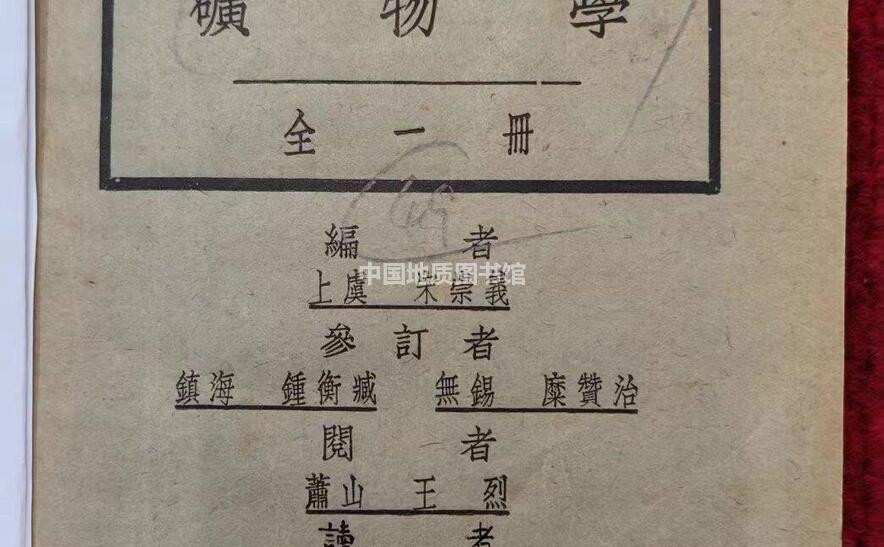 礦物學
全一冊
編者
中国地质图书馆
上虞 宋崇義
參訂者
鎮海 鍾衡臧 無錫 糜贊治
閱者
蕭山 王烈
讀者